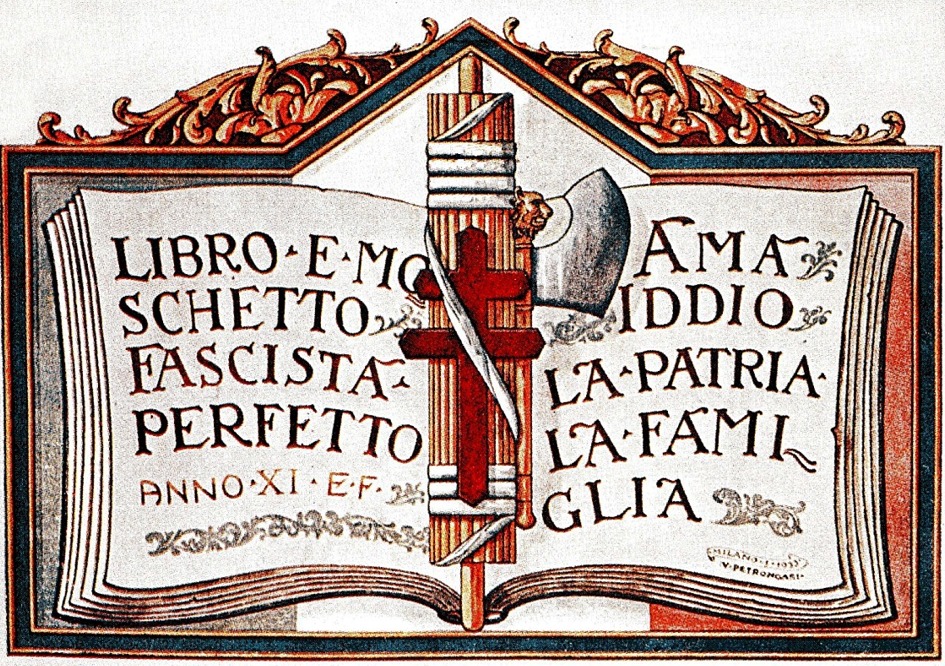 LIBRO·E·MO
SCHETTO
FASCISTA·
PERFETTO
ANNO·XI·E·F·
AMA
IDDIO
LA·PATRIA·
LA·FAMI
GLIA
MILANO
V·PETRONGARI·